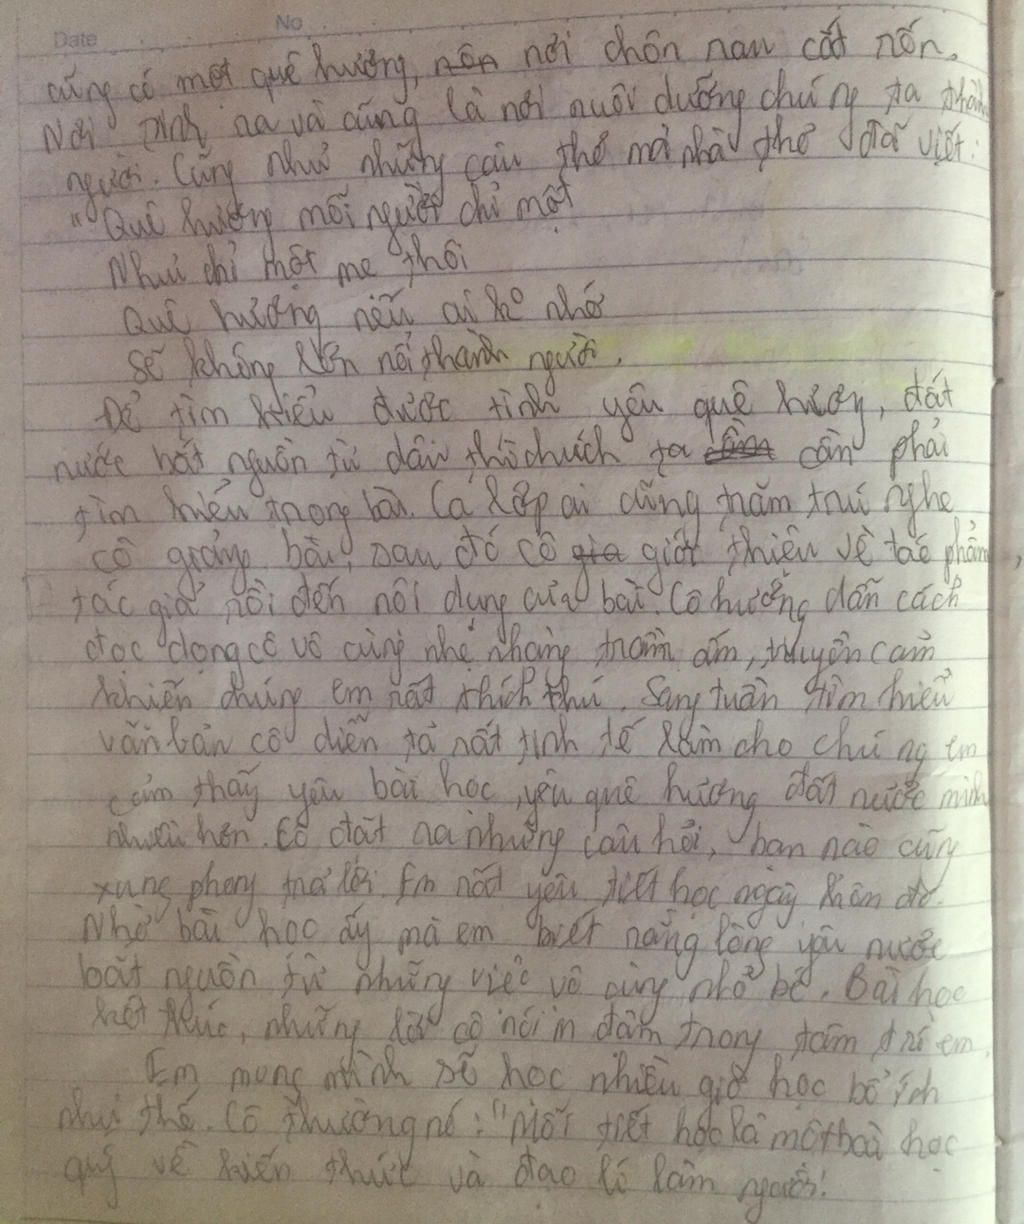 Date No
cũng có một quê hương, nôn nơi chôn nau cắt nốn.
Nơi sinh ra và cũng là nơi nuôi dưỡng chúng ta thành
người. Cũng như những câu thơ mà nhà thơ đã viết:
"Quê hương mỗi người chỉ một
Như chỉ một mẹ thôi
Quê hương nếu ai ko nhớ
Sẽ không lớn nổi thành người.
Để tìm hiểu được tình yêu quê hương, đất
nước bắt nguồn từ đâu thì chích ta cần phải
tìm hiểu trong bài. Cả lớp ai cũng trăm trú nghe
cô giảng bài, sau đó cô gia giới thiêu về tác phẩm,
tác giả rồi đến nội dung của bài. Cô hướng dẫn cách
đọc dọng cô vô cùng nhẹ nhàng trầm ấm, truyền cảm
khiến chúng em rất thích thú. Sang tuần tìm hiểu
văn bản cô diễn tả rất tinh tế làm cho chúng em
cảm thấy yêu bài học, yêu quê hương đất nước mình
nhiều hơn. Cô đặt ra những câu hỏi, bạn nào cũng
xung phong trả lời. Em rất yêu tiết học ngày hôm đó.
Nhờ bài học ấy mà em biết rằng lòng yêu nước
bắt nguồn từ những việc vô cùng nhỏ bé. Bài học
kết thúc, những lời cô nói in đậm trong tâm trí em.
Em mong mình sẽ học nhiều giờ học bổ ích
như thế. Cô thường nó: "Mỗi tiết học là một bài học
quý về kiến thức và đạo lí làm người!